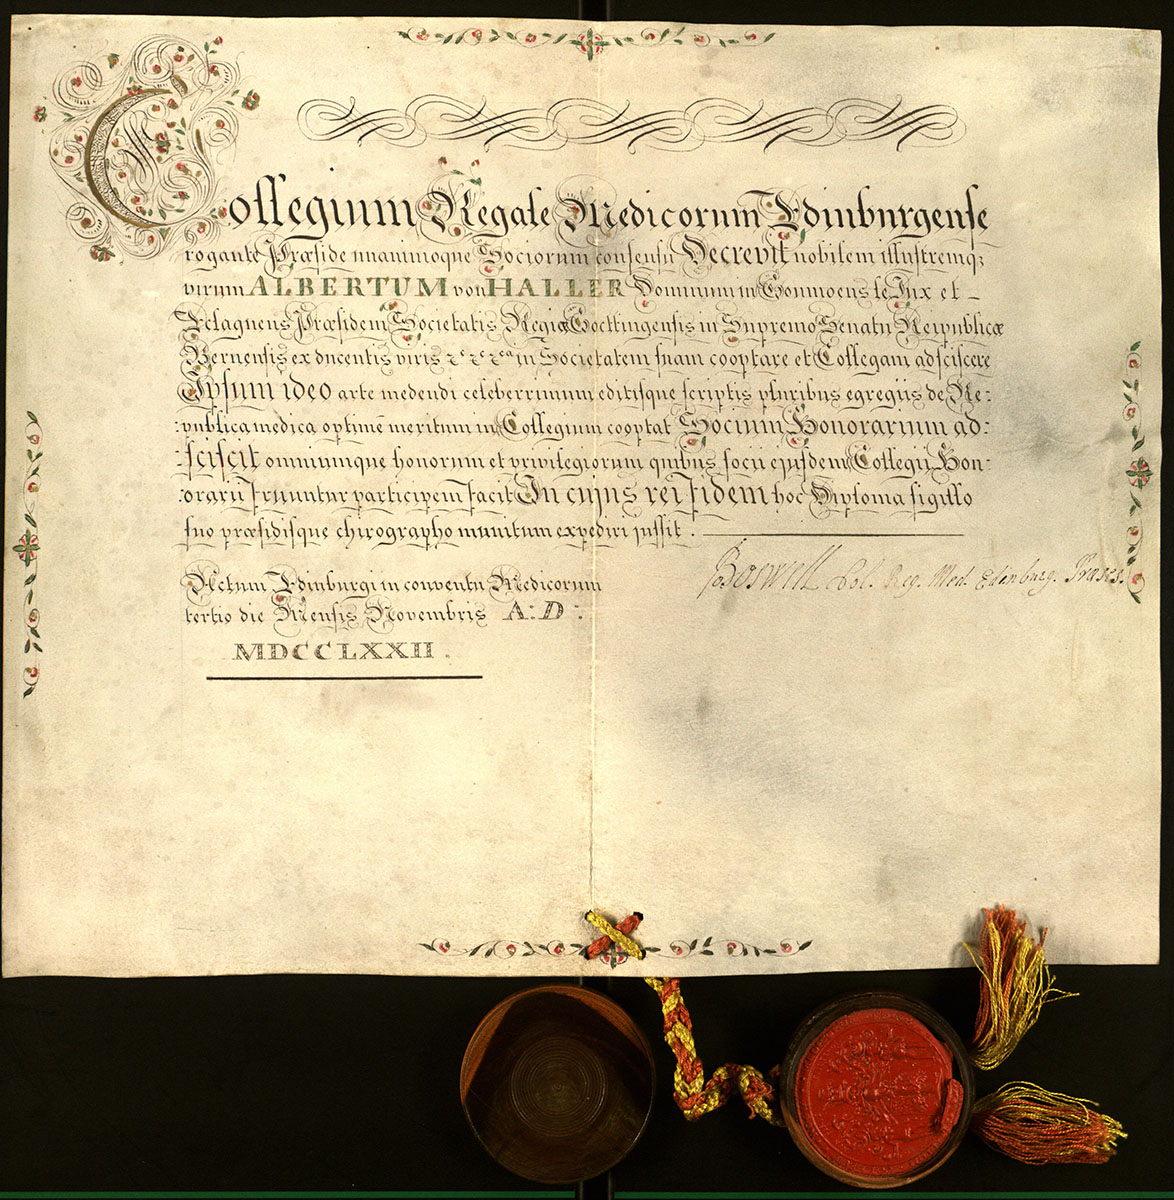 Collegium Regale Medicorum Edinburgense
rogante Præside unanimoque Sociorum consensu Decrevit nobilem illustremq;
virum ALBERTUM von HALLER Dominum in Goumoens le Jux et
Eclagnens Præsidem Societatis Regiæ Goettingensis in Supremo Senatu Reipublicæ
Bernensis ex ducentis viris in Societatem suam cooptare et Collegam adsciscere
Ipsum ideo arte medendi celeberrimum editisque scriptis pluribus egregiis de Re-
publica medica optime meritum in Collegium cooptat Socium Honorarium ad-
-sciscit omniumque honorum et privilegiorum quibus socii ejusdem Collegii Hon-
orarii fruuntur participem facit In cujus rei fidem hoc Diploma sigillo
suo præsidisque chirographo munitum expediri jussit.
Jo Boswell Col. Reg. Med. Edinburg. Præses.
Actum Edinburgi in conventu Medicorum
tertio die Mensis Novembris A: D:
MDCCLXXII.